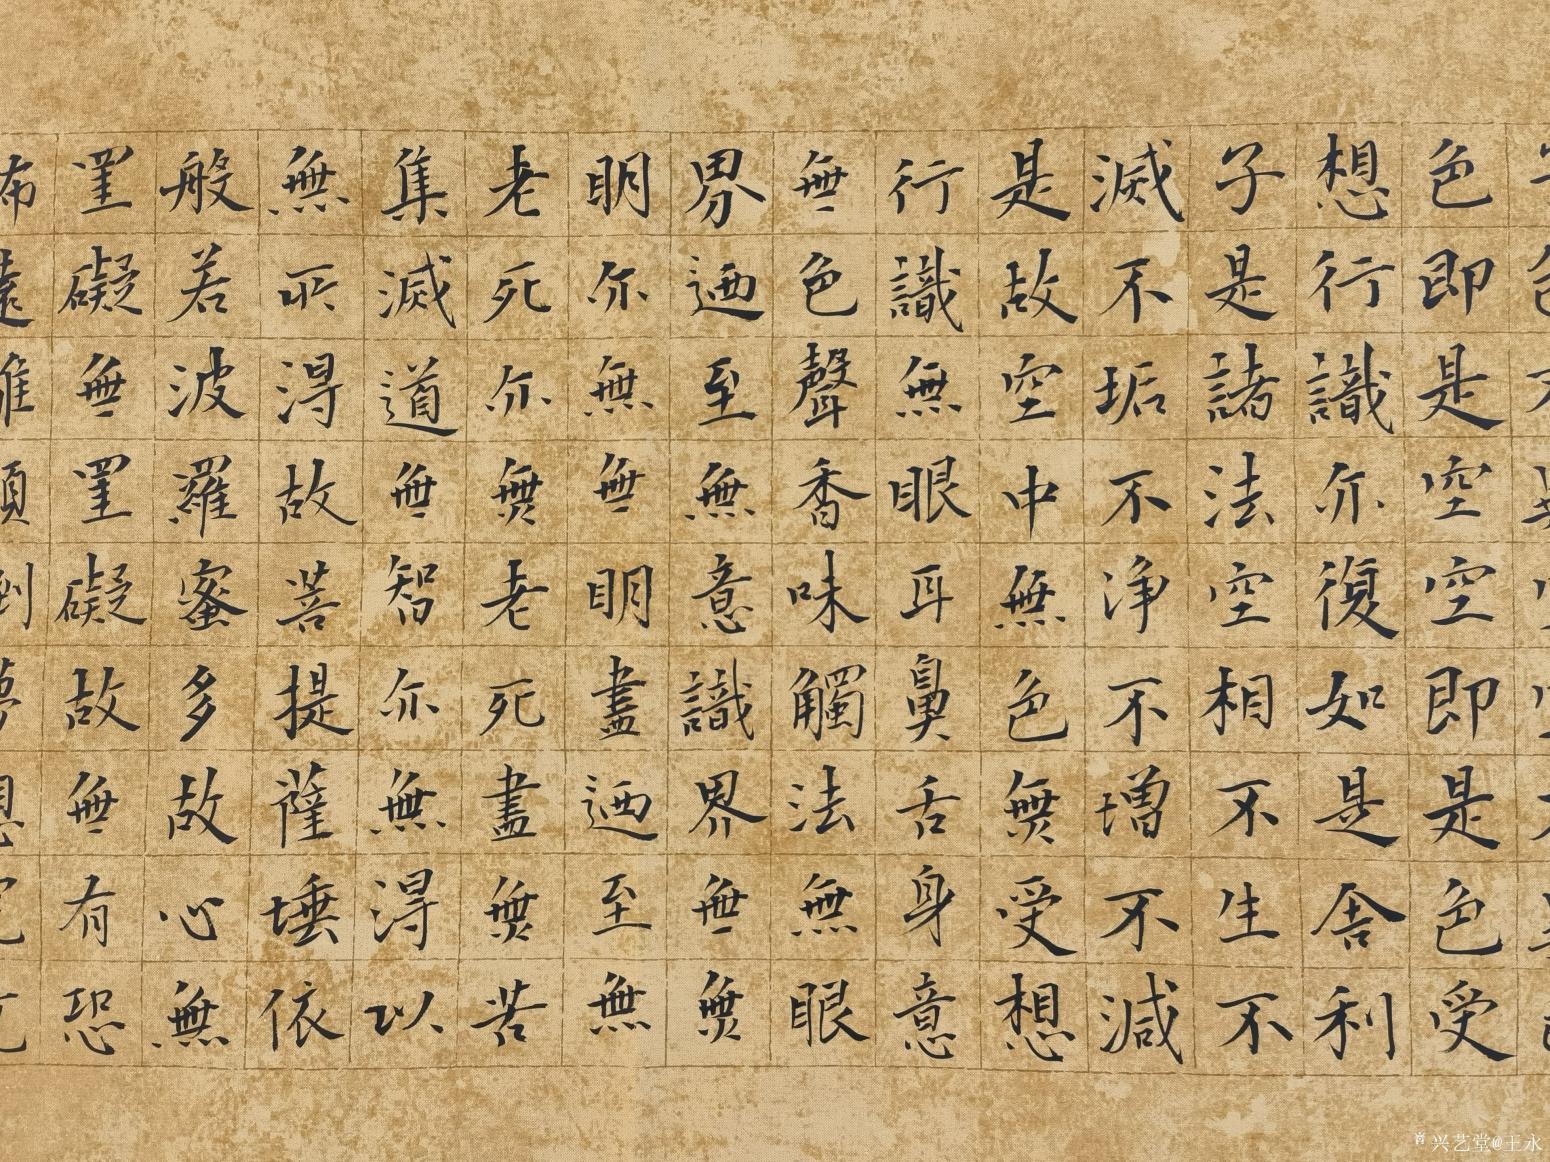 色即是空空即是色受
想行識亦復如是舍利
子是諸法空相不生不
滅不垢不浄不增不減
是故空中無色無受想
行識無眼耳鼻舌身意
無色聲香味觸法無眼
界迺至無意識界無無
明亦無無明盡迺至無
老死亦無老死盡無苦
集滅道無智亦無得以
無所得故菩提薩埵依
般若波羅蜜多故心無
罣礙無罣礙故無有恐
怖遠離顛倒夢想究
兴艺堂@王永